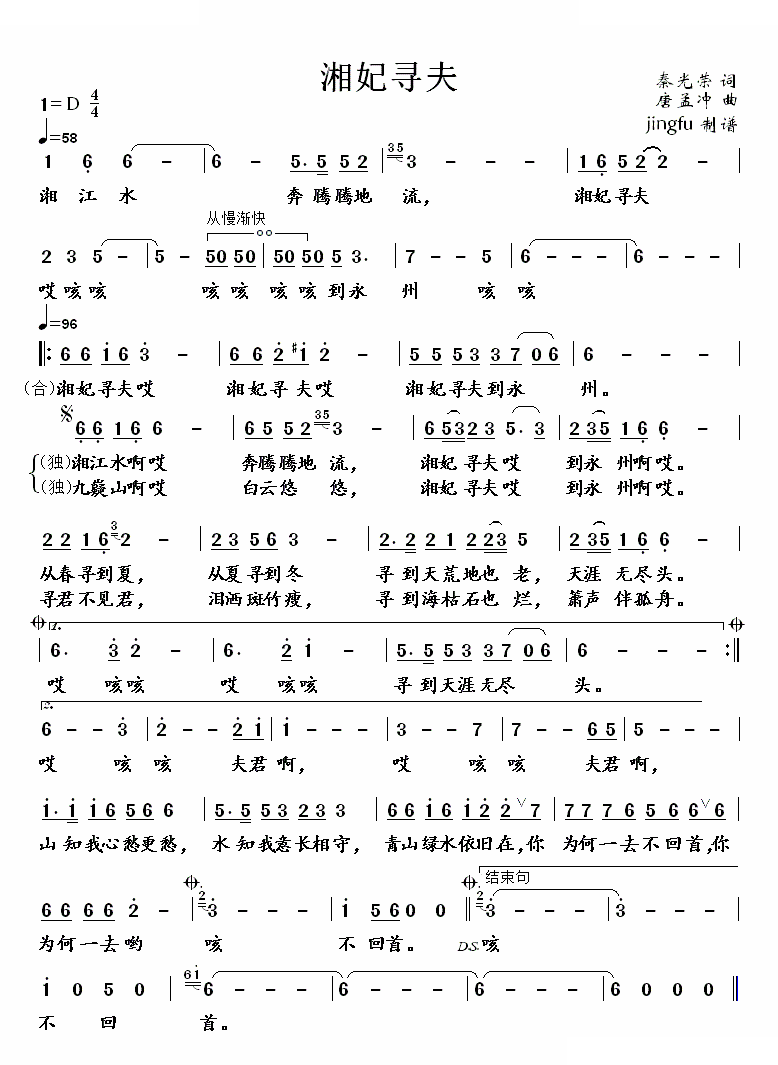 湘妃寻夫
秦光荣 词
1=D 4/4
唐孟冲 曲
jingfu 制谱
♩=58
1 6 6 - | 6 - 5. 5 5 2 | 35 3 - - - | 1 6 5 2 2 - |
湘 江 水 奔 腾 腾 地 流， 湘 妃 寻 夫
从慢渐快
2 3 5 - | 5 - 50 50 | 50 50 5 3. | 7 - - 5 | 6 - - - | 6 - - - |
哎 咳 咳 咳 咳 咳 咳 到 永 州 咳 咳
♩=96
‖: 6 6 1 6 3 - | 6 6 2 #1 2 - | 5 5 5 3 3 7 0 6 | 6 - - - |
(合)湘 妃 寻 夫 哎 湘 妃 寻 夫 哎 湘 妃 寻 夫 到 永 州。
6 6 1 6 6 - | 6 5 5 2 35 3 - | 6 53 23 5. 3 | 2 35 1 6 6 - |
(独)湘 江 水 啊 哎 奔 腾 腾 地 流， 湘 妃 寻 夫 哎 到 永 州 啊 哎。
(独)九 嶷 山 啊 哎 白 云 悠 悠， 湘 妃 寻 夫 哎 到 永 州 啊 哎。
2 2 1 6 3 2 - | 2 3 5 6 3 - | 2. 2 2 1 2 23 5 | 2 35 1 6 6 - |
从 春 寻 到 夏， 从 夏 寻 到 冬 寻 到 天 荒 地 也 老， 天 涯 无 尽 头。
寻 君 不 见 君， 泪 洒 斑 竹 瘦， 寻 到 海 枯 石 也 烂， 萧 声 伴 孤 舟。
1.
| 6. 3 2 - | 6. 2 1 - | 5. 5 5 3 3 7 0 6 | 6 - - - :‖
哎 咳 咳 哎 咳 咳 寻 到 天 涯 无 尽 头。
2.
6 - - 3 | 2 - - 2 1 | 1 - - - | 3 - - 7 | 7 - - 6 5 | 5 - - - |
哎 咳 咳 夫 君 啊， 哎 咳 咳 夫 君 啊，
1. 1 1 6 5 6 6 | 5. 5 5 3 2 3 3 | 6 6 1 6 1 2 2 ∨ 7 | 7 7 7 6 5 6 6 ∨ 6 |
山 知 我 心 愁 更 愁， 水 知 我 意 长 相 守， 青 山 绿 水 依 旧 在，你 为 何 一 去 不 回 首，你
结束句
6 6 6 6 2 - | 2 3 - - - | 1 5 6 0 0 ‖ 2 3 - - - | 3 - - - |
为 何 一 去 哟 咳 不 回 首。 D.S. 咳
1 0 5 0 | 61 6 - - - | 6 - - - | 6 - - - | 6 0 0 0 ‖
不 回 首。